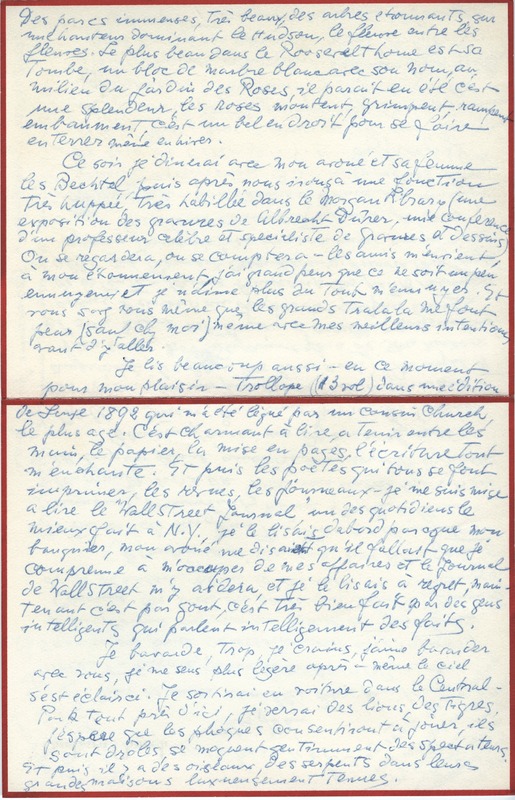 Des parcs immenses, très beaux, des arbres étonnants, sur
une hauteur dominant le Hudson, le fleuve entre les
fleuves. Le plus beau dans le Roosevelt home est sa
Tombe, un bloc de marbre blanc avec son nom, au
milieu du jardin des Roses, il paraît en été c'est
une splendeur, les roses montent, grimpent, rampent
embaument, c'est un bel endroit pour se faire
enterrer même en hiver.
Ce soir je dînerai avec mon avoué et sa femme
les Bechtel, puis après nous irons à une fonction
très huppée, très habillée dans le Morgan Library (une
exposition des gravures de Albrecht Dürer, une conférence
d'un professeur célèbre et spécialiste de gravures et Dessins)
On se regardera, on se comptera – les amis
à mon étonnement, j'ai grand peur que ce ne soit un peu
ennuyeux, et je n'aime plus du tout m'ennuyer. Et
vous savez vous même que les grands tralala me font
peur (sauf chez moi) même avec mes meilleurs intentions
avant d'y aller.
Je lis beaucoup aussi – en ce moment
pour mon plaisir – Trollope (13 vol) dans une édition
de luxe 1892 qui m'a été légué par un cousin Church,
le plus agé. C'est charmant à lire, a tenir entre les
mains, le papier, la mise en pages, l'écriture tout
m'enchante. Et puis les poètes qui tous se font
imprimer, les revues, les journeaux – je me suis mise
a lire le Wall Street Journal un des quotidiens le
mieux fait à N.Y., je le lisais d'abord parce que mon
banquier, mon avoué me disaient qu'il fallait que je
comprenne a m'occuper de mes affaires et le Journal
de Wall Street m'y aidera, et je le lisais à regret, main-
tenant c'est par gout, c'est très bien fait par des gens
intelligents qui parlent intelligement des faits.
Je bavarde, trop, je crains, j'aime bavarder
avec vous, je me sens plus légère après – même le ciel
s'est éclairci. Je sortirai en voiture dans le Central-
Park tout près d'ici, je verrai des lions, des tigres,
j'espère que les phoques consentiront à jouer, ils
sont drôles, se moquent gentiment des spectateurs.
Et puis il y a des oiseaux des serpents dans leurs
grandes maisons luxueusement tenues.